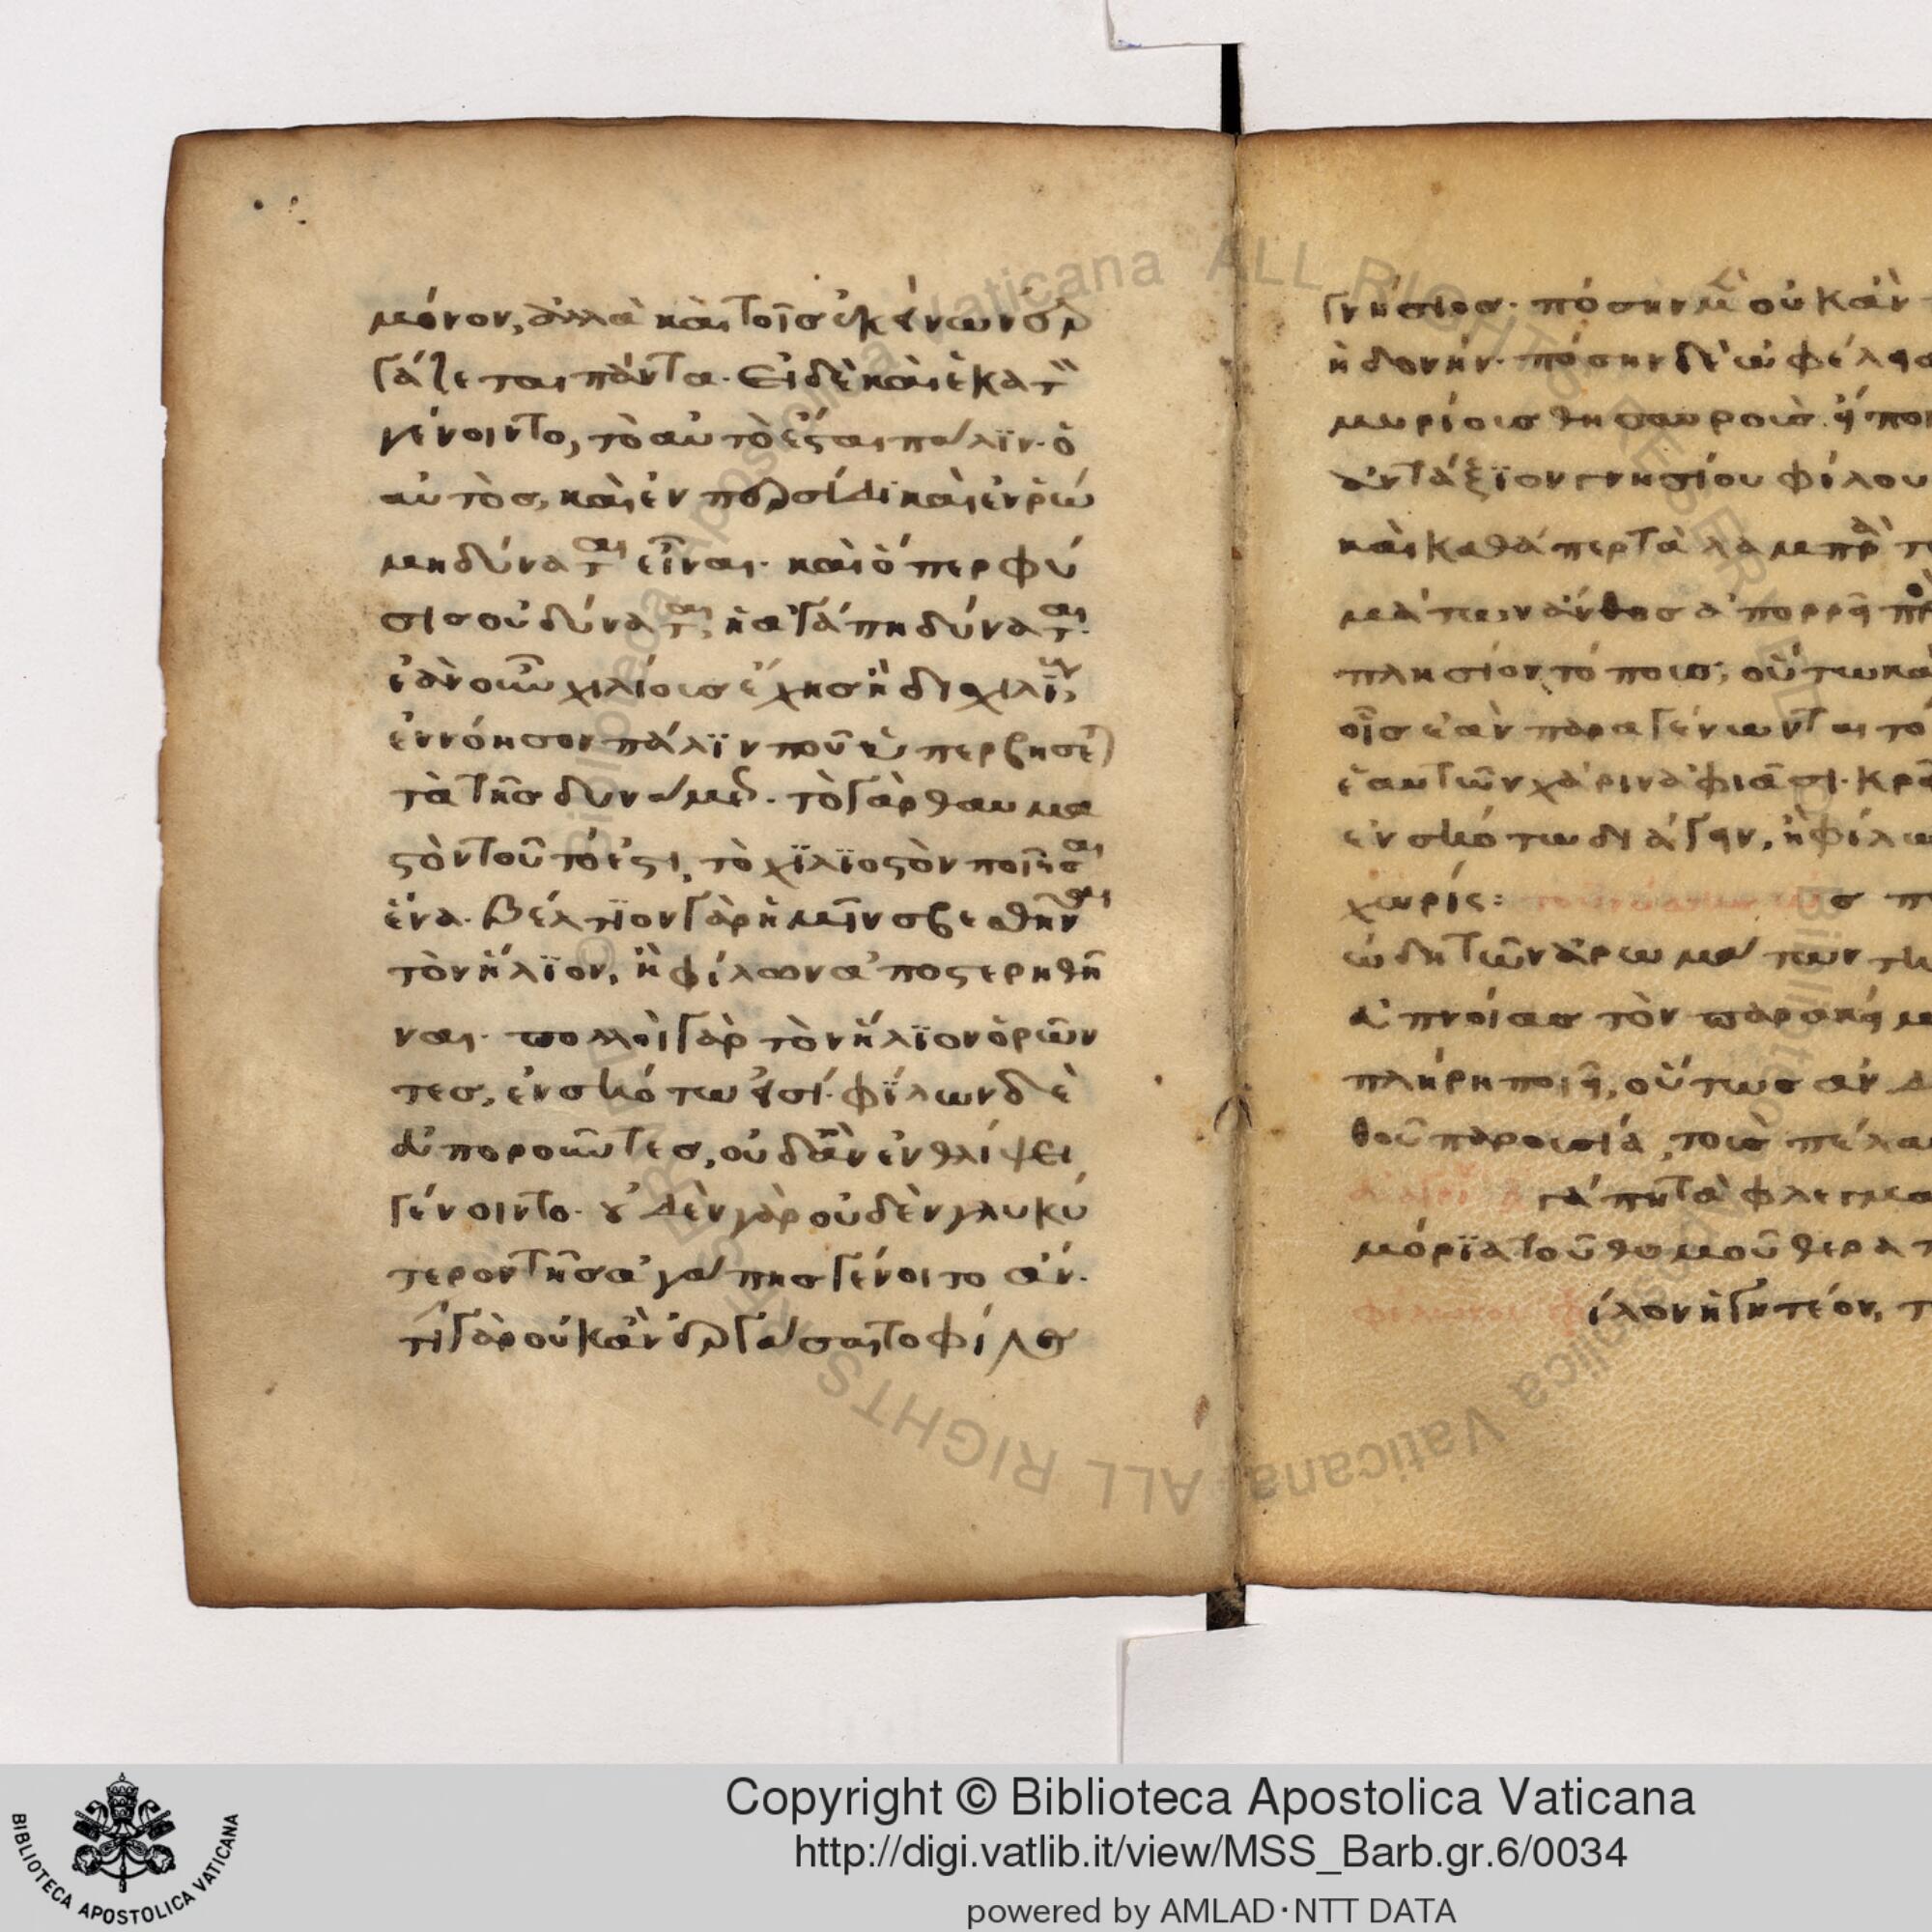 μόνον, ἀλλὰ καὶ τοῖς ἐκείνων ἐρ
γάζεται πάντα. Εἰ δὲ καὶ ἑκατ
γένοιντο, τὸ αὐτὸ ἔσται πάλϊν· ὁ
αὐτὸς, καὶ ἐν περσίδι καὶ ἐν ῥώ
μη δύναται εἶναι. καὶ ὅπερ φύ
σις οὐ δύναται, ἡ ἀγάπη δύναται.
ἐὰν οὖν χιλίους ἔχης ἢ διχιλΐ,
ἐννόησον πάλϊν ποῦ ὑπερβήσε
τὰ τῆς δυνάμε. τὸ γὰρ θαυμα
στὸν τοῦτό ἐστι, τὸ χϊλϊοστὸν ποιῆσαι
ἕνα. Βέλτϊον γὰρ ἡμῖν σβεσθῆναι
τὸν ἥλϊον, ἢ φίλων ἀποστερηθῆ
ναι. πολλοὶ γὰρ τὸν ἥλϊον ὁρῶν
τες, ἐν σκότω εἰσί. φΐλων δὲ
εὐποροῦντες, οὐδ ἂν ἐν θλίψει
γένοιντο. οὐδὲν γὰρ οὐδὲν γλυκύ
τερον τῆς ἀγάπης γένοιτο ἄν.
τί γὰρ οὐκ ἂν ἐργάσαιτο φίλος
γνήσιος. πόσην μὲν οὐκ ἂν
ἡδονήν. πόσην δὲ ὠφέλει
μυρίους θησαυροὺς. ἢ
ἀντάξϊον γνησίου φίλου
καὶ καθάπερ τὰ λαμπρὰ
ἄνθης ἀπορρεῖ
πλησίον τόποις, οὕτω
οἷς ἐὰν παραγένωνται
ἑαυτῶν χάριν ἀφιᾶσι.
ἐν σκότω διάγειν, ἢ φίλω
χωρίς:
ώδη τῶν ἀρωμάτων
εὐπνοίας τὸν παρακεί
πλήρη ποιεῖ, οὕτως ἀν
θοῦ παρουσία, τοὺς πέλα
τὰ φλεγμα
μόρϊα τοῦ θυμοῦ θεραπ
ίλον ἡγητέον,
Copyright © Biblioteca Apostolica Vaticana
http://digi.vatlib.it/view/MSS_Barb.gr.6/0034
powered by AMLAD·NTT DATA
BIBLIOTECA APOSTOLICA VATICANA